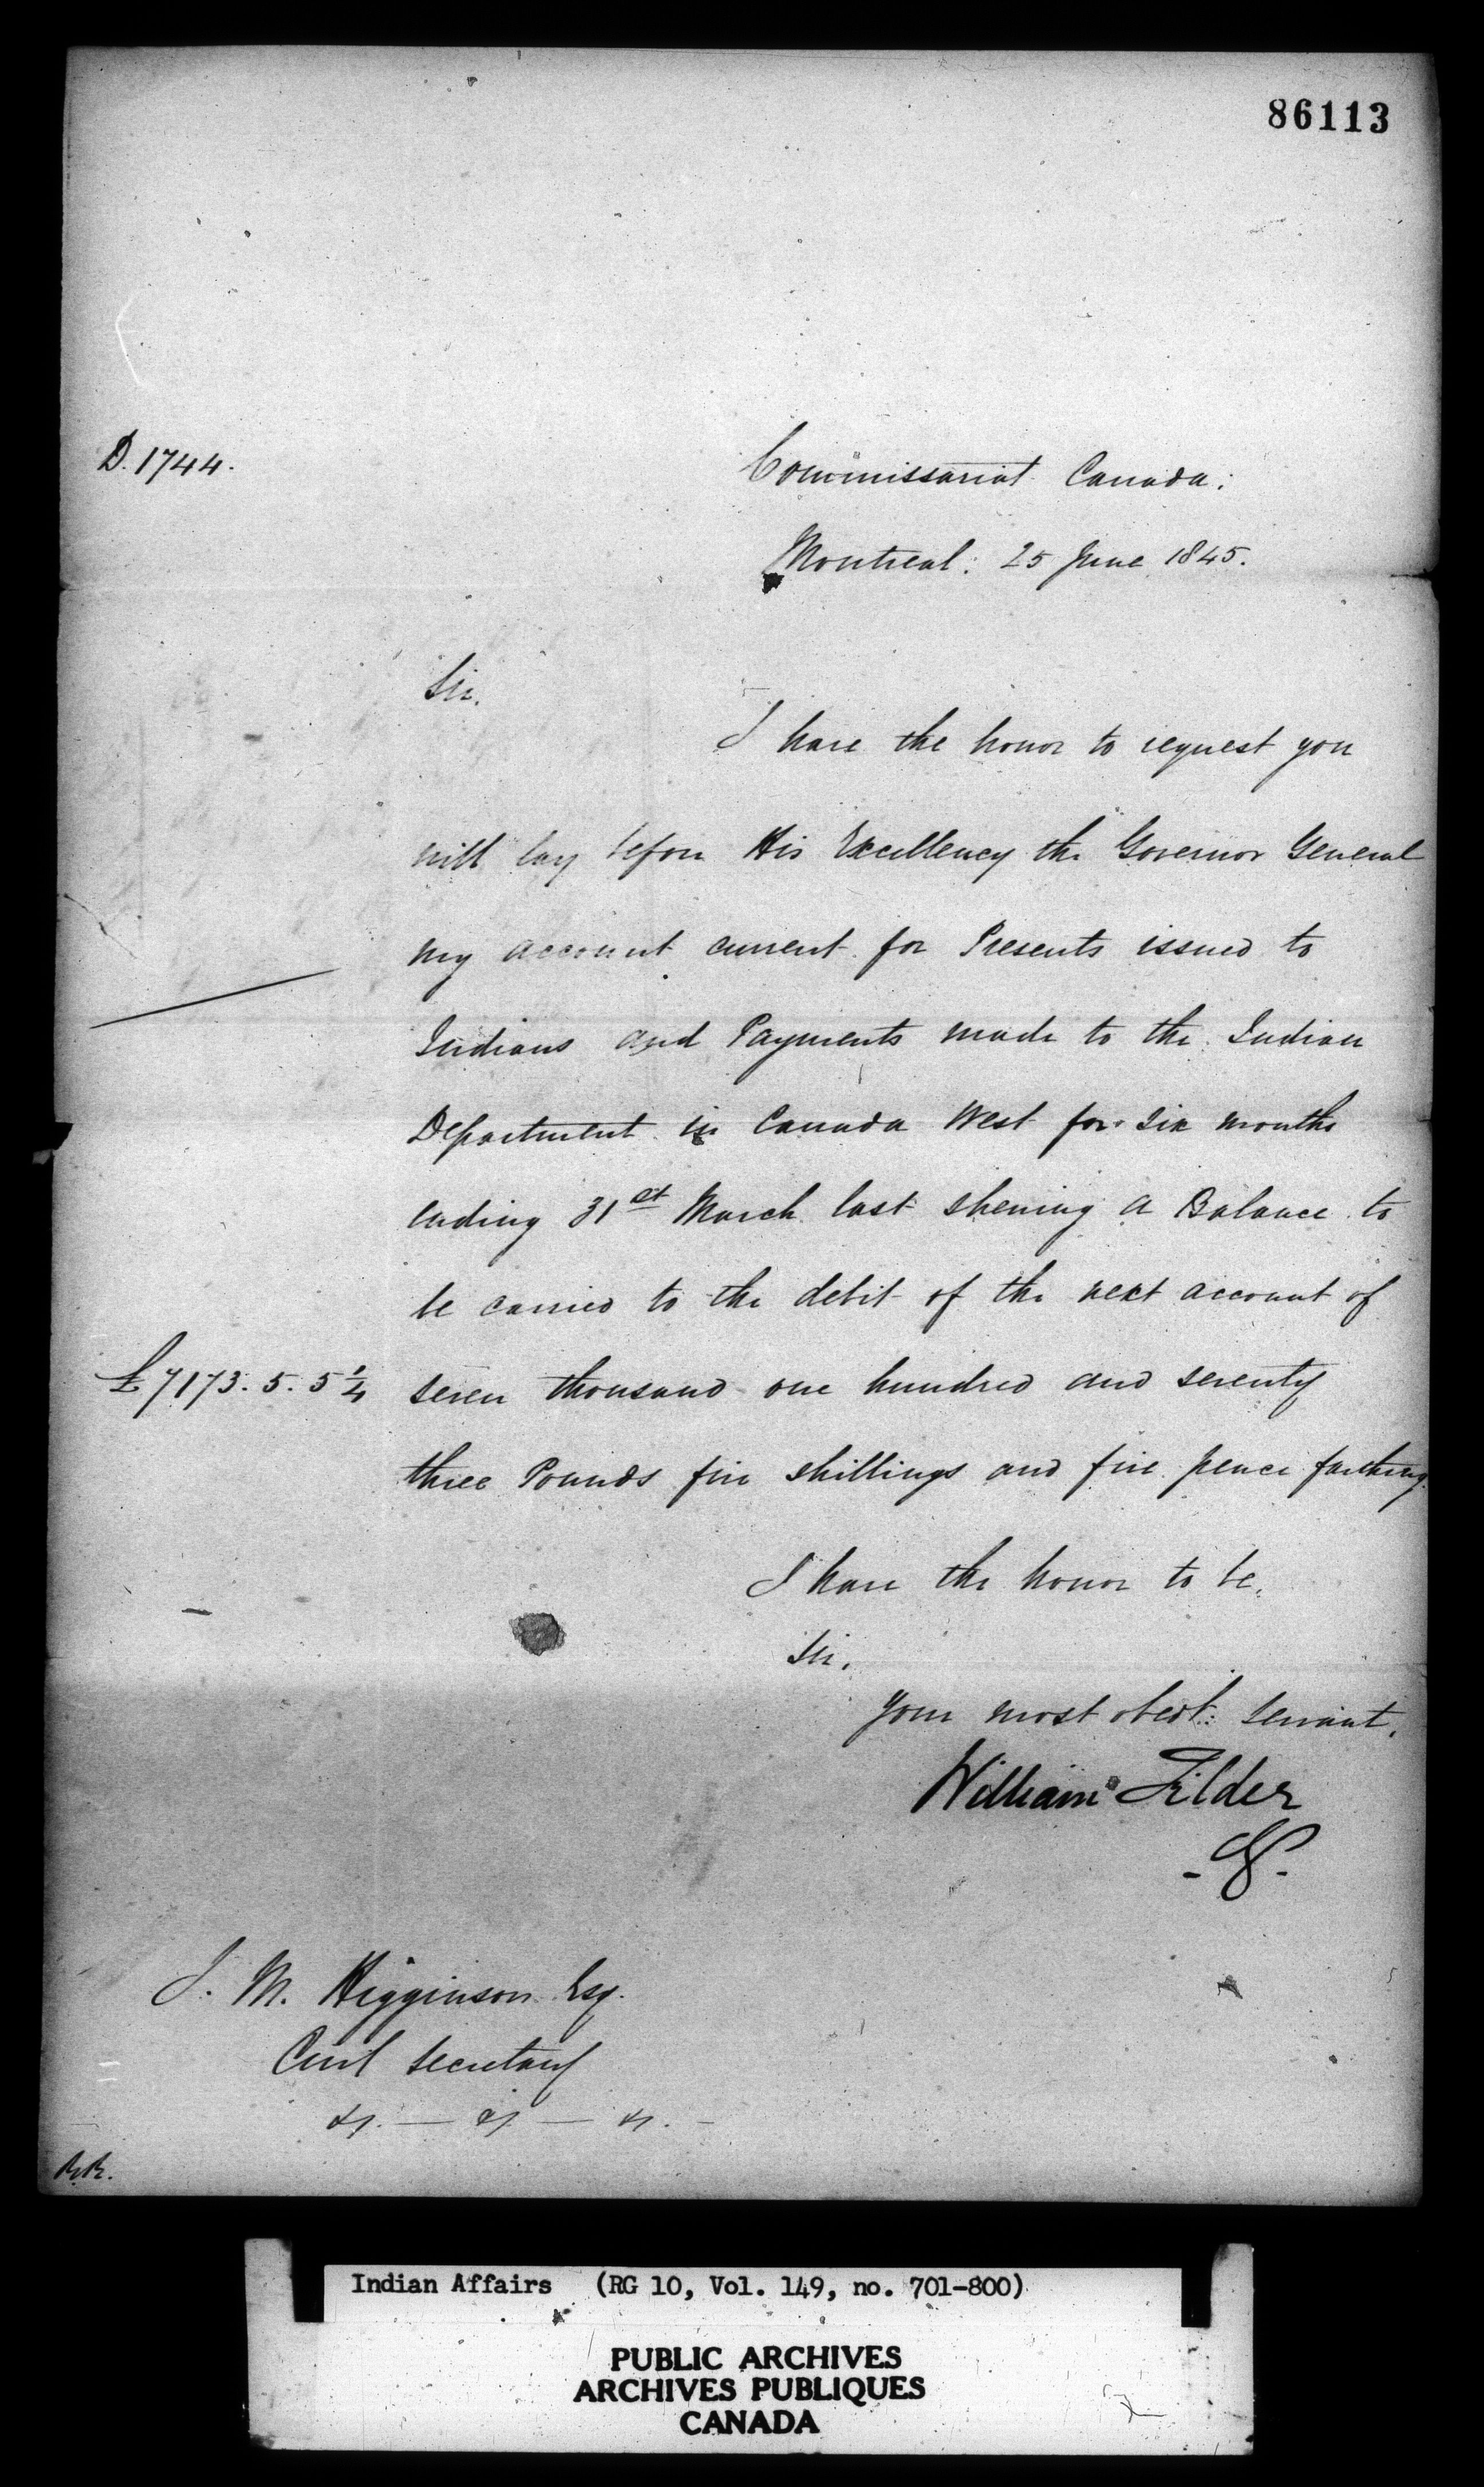 86113
D. 1744.
Commissariat Canada:
Montreal: 25 June 1845.
Sir,
I have the honor to request you
will lay before His Excellency the Governor General
my account current for Presents issued to
Indians and Payments made to the Indian
Department in Canada West for six months
ending 31st March last shewing a Balance to
be carried to the debit of the next account of
£7173. 5. 5 1/4 seven thousand one hundred and seventy
three Pounds five shillings and five pence farthing.
I have the honor to be,
Sir,
Your most obedt: servant,
William Filder
J. M. Higginson Esq.
Civil Secretary
&c. — &c. — &c. —
Indian Affairs (RG 10, Vol. 149, no. 701-800)
PUBLIC ARCHIVES
ARCHIVES PUBLIQUES
CANADA